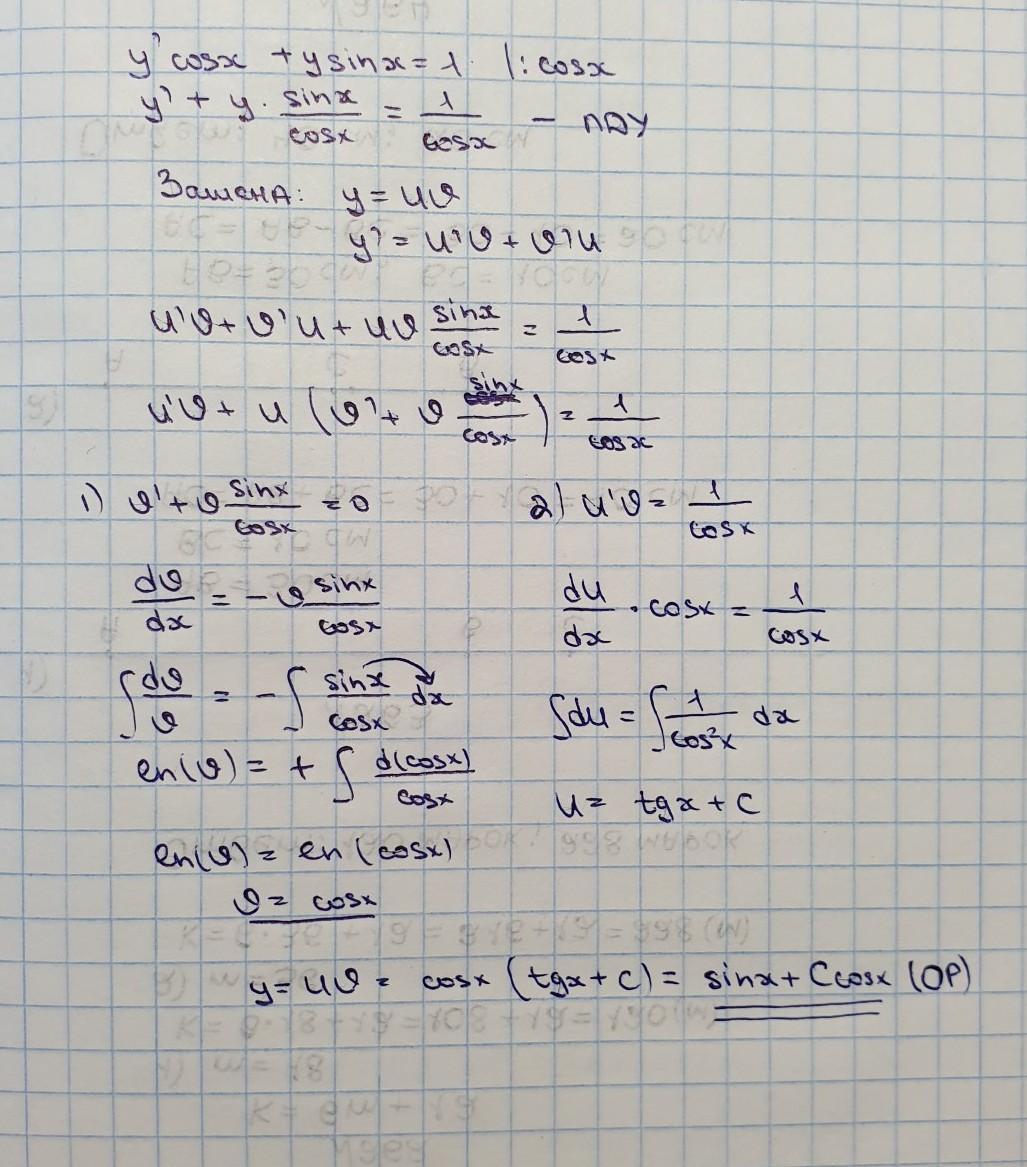 y' cosx + y sinx = 1 |: cosx
y' + y · sinx/cosx = 1/cosx – ЛДУ
Замена: y = uϑ
y' = u'ϑ + ϑ'u
u'ϑ + ϑ'u + uϑ sinx/cosx = 1/cosx
u'ϑ + u (ϑ' + ϑ sinx/cosx) = 1/cosx
1) ϑ' + ϑ sinx/cosx = 0
dϑ/dx = -ϑ sinx/cosx
∫ dϑ/ϑ = -∫ sinx/cosx dx
ln(ϑ) = + ∫ d(cosx)/cosx
ln(ϑ) = ln(cosx)
ϑ = cosx
2) u'ϑ = 1/cosx
du/dx · cosx = 1/cosx
∫du = ∫ 1/cos²x dx
u = tgx + C
y = uϑ = cosx (tgx + C) = sinx + C cosx (ОР)